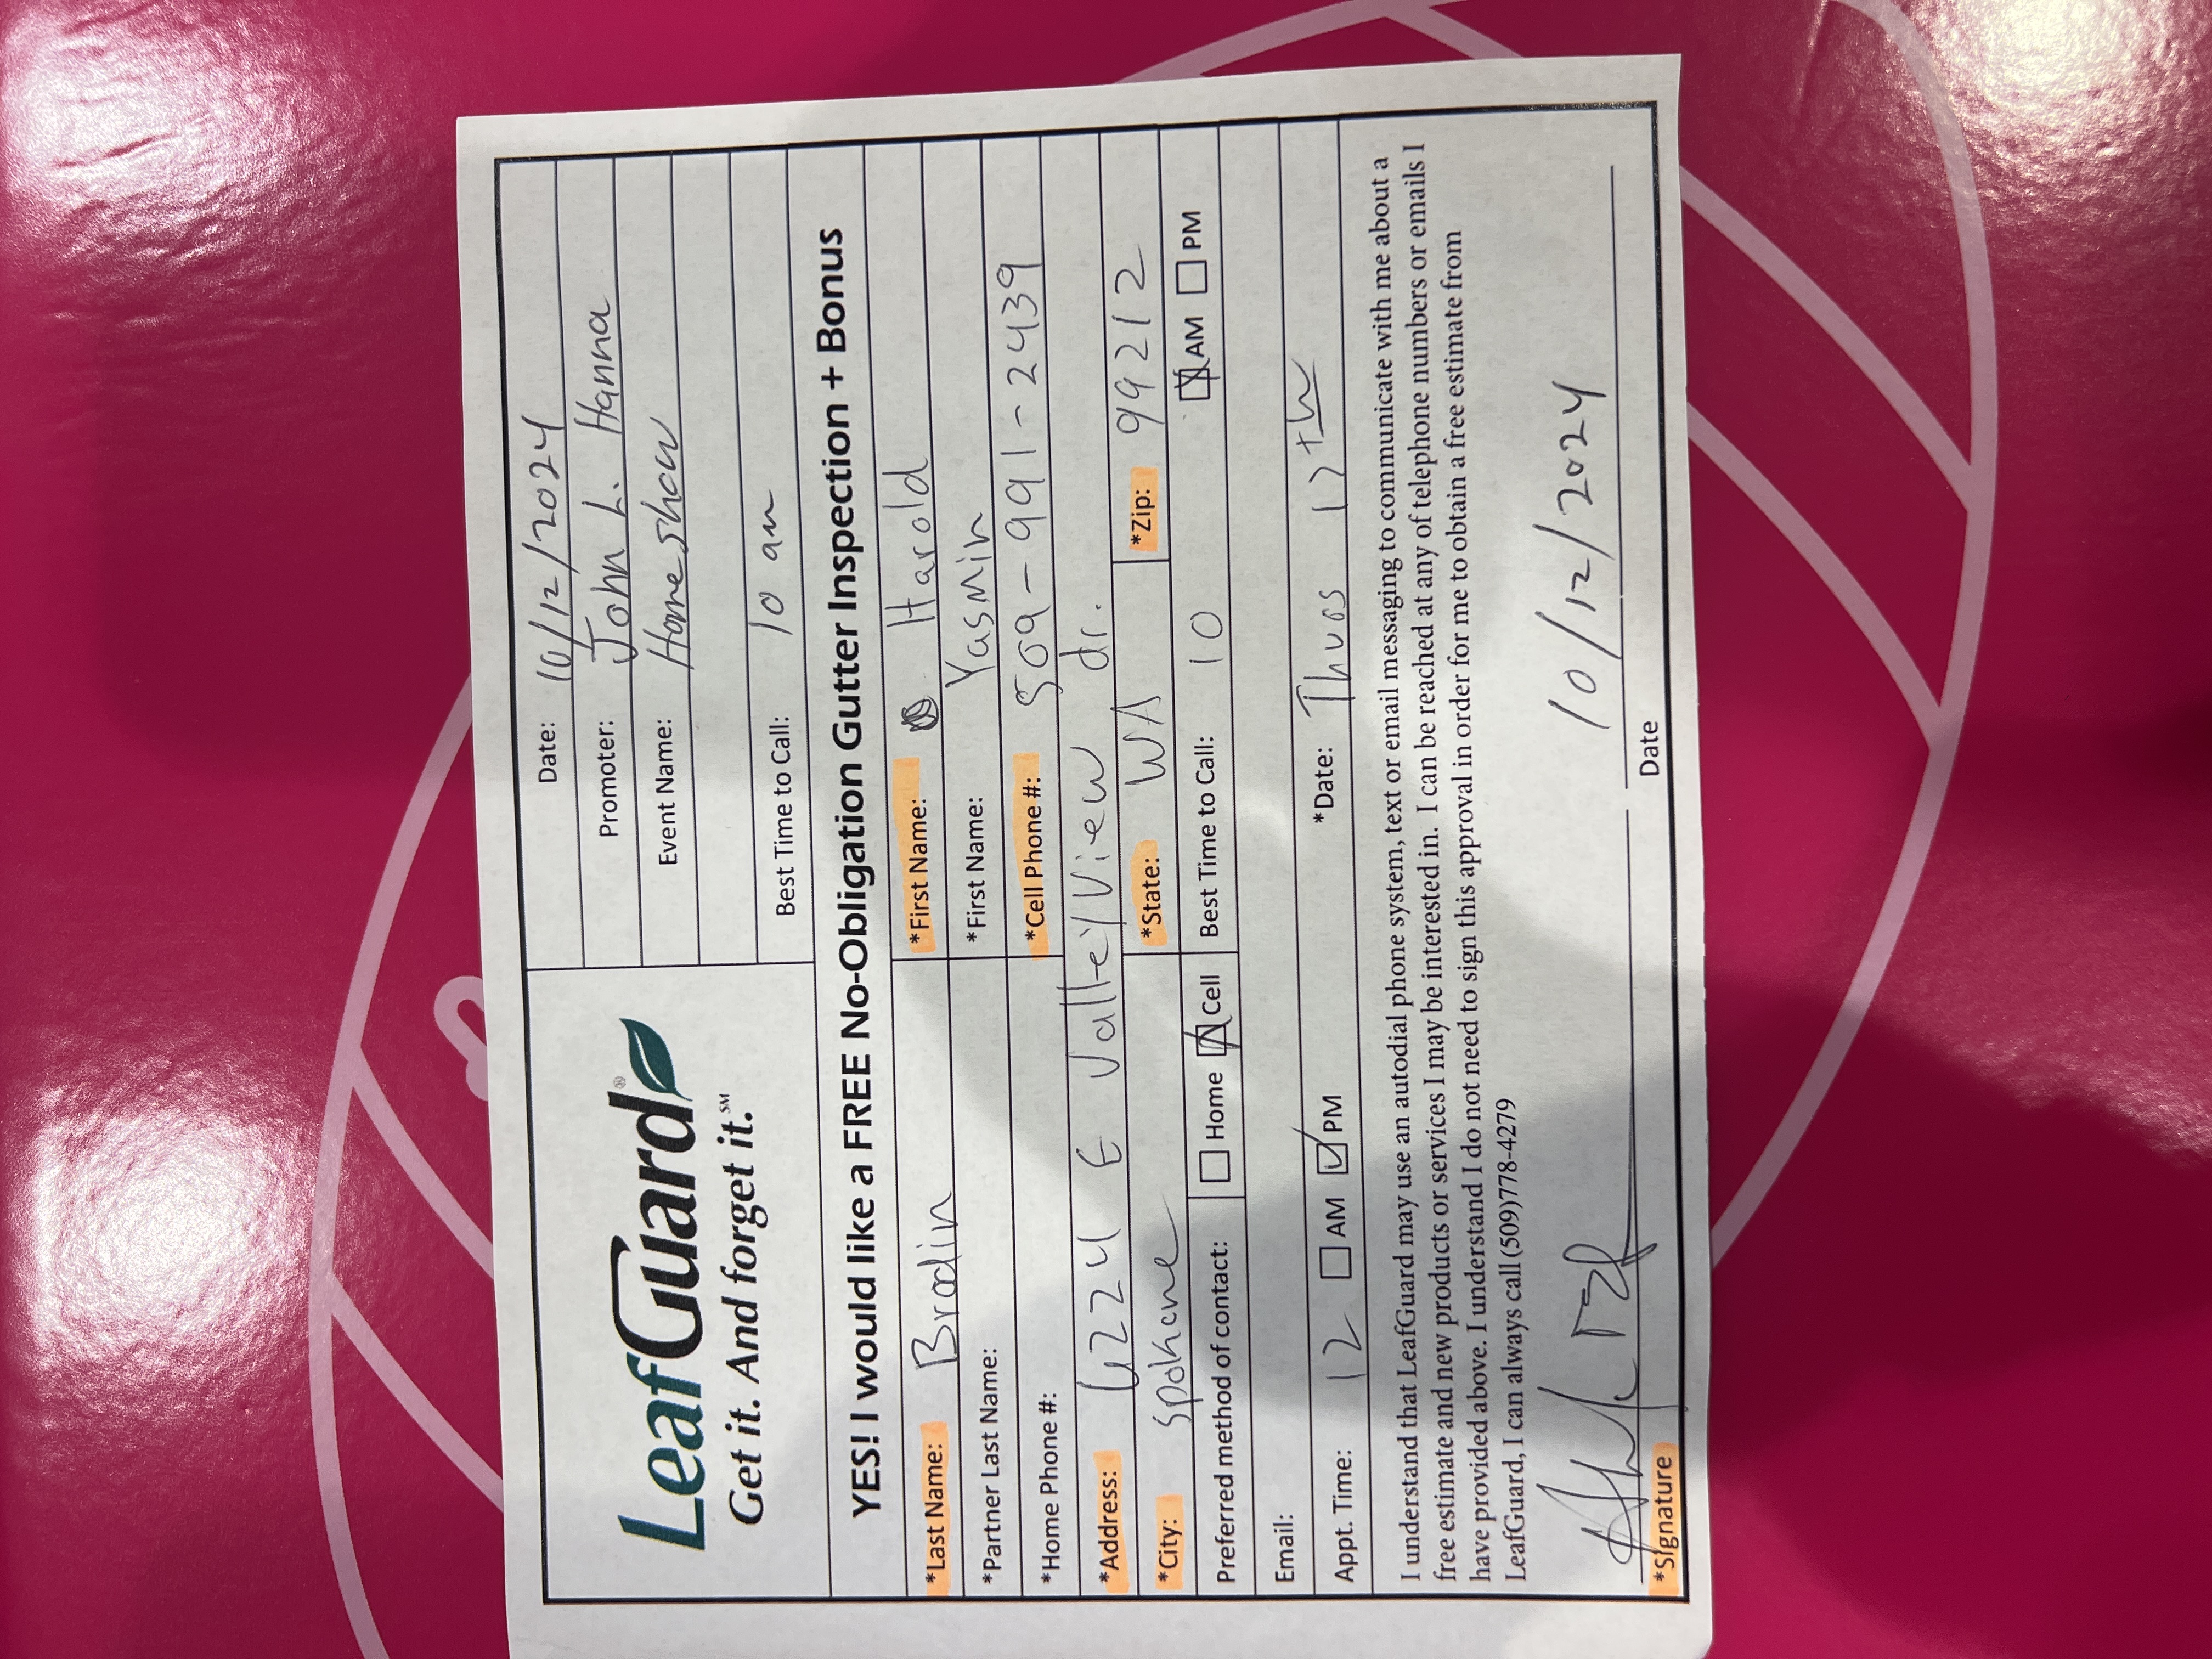 Date: 10/12/2024
Promoter: John L. Hanna
LeafGuard®
Get it. And forget it.℠
Event Name: Home show
Best Time to Call: 10 am
YES! I would like a FREE No-Obligation Gutter Inspection + Bonus
*Last Name: Brodin *First Name: Harold
*Partner Last Name: *First Name: Yasmin
*Home Phone #: *Cell Phone #: 509-991-2439
*Address: 6224 E Valleyview dr.
*City: Spokane *State: WA *Zip: 99212
Preferred method of contact: Home Cell Best Time to Call: 10 AM PM
Email:
Appt. Time: 12 AM PM *Date: Thurs 17th
I understand that LeafGuard may use an autodial phone system, text or email messaging to communicate with me about a
free estimate and new products or services I may be interested in. I can be reached at any of telephone numbers or emails I
have provided above. I understand I do not need to sign this approval in order for me to obtain a free estimate from
LeafGuard, I can always call (509)778-4279
10/12/2024
*Signature Date